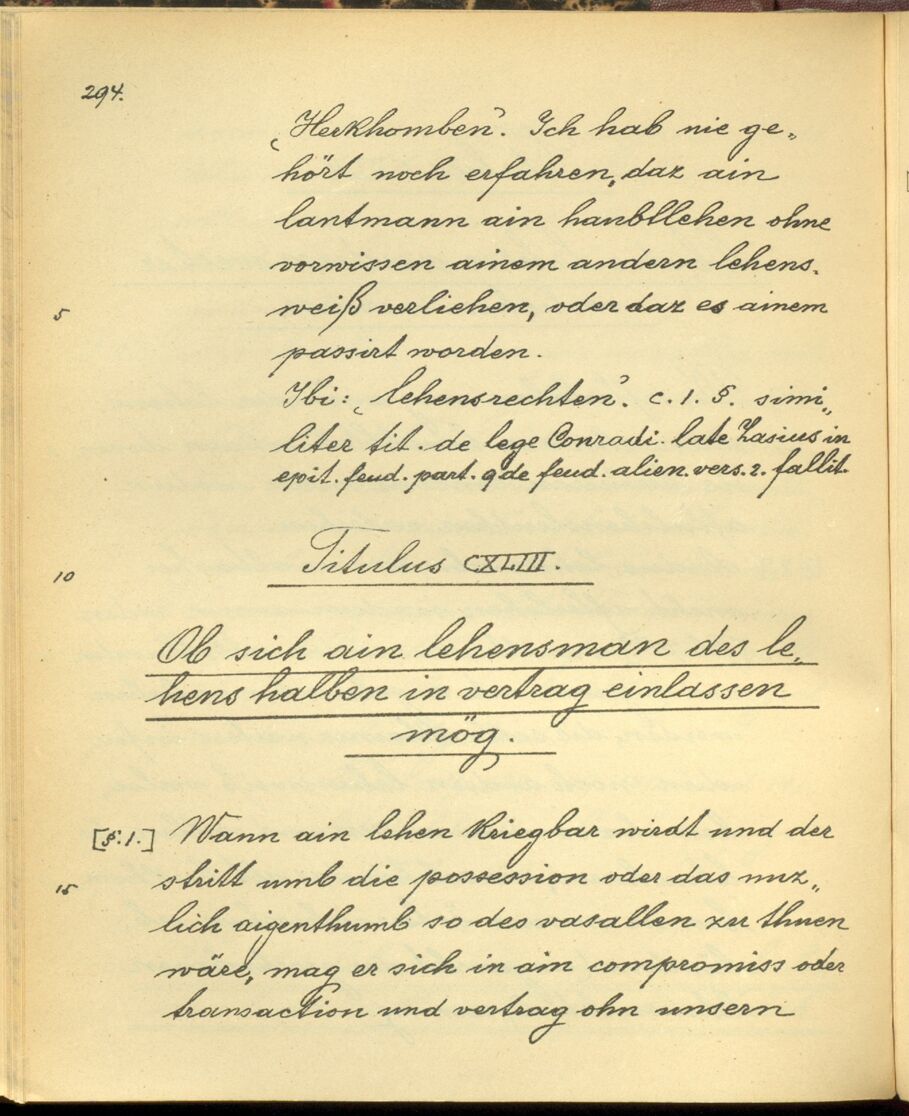 294.
„Herkhomben”. Ich hab nie ge„
hört noch erfahren, daz ain
lantmann ain haubtlehen ohne
vorwissen ainem andern lehens„
5 weiß verliehen, oder daz es ainem
passirt worden.
Ibi: „lehensrechten”. c. 1. §. simi„
liter tit. de lege Conradi. late Zasius in
epit. feud. part. 9 de feud. alien. vers. 2. fallit.
10 Titulus CXLIII.
Ob sich ain lehensman des le„
hens halben in vertrag einlassen
mög.
[§.1.] Wann ain lehen kriegbar wirdt und der
15 stritt umb die possession oder das nuz„
lich aigenthumb so des vasallen zu thuen
wäre, mag er sich in ain compromiss oder
transaction und vertrag ohn unsern